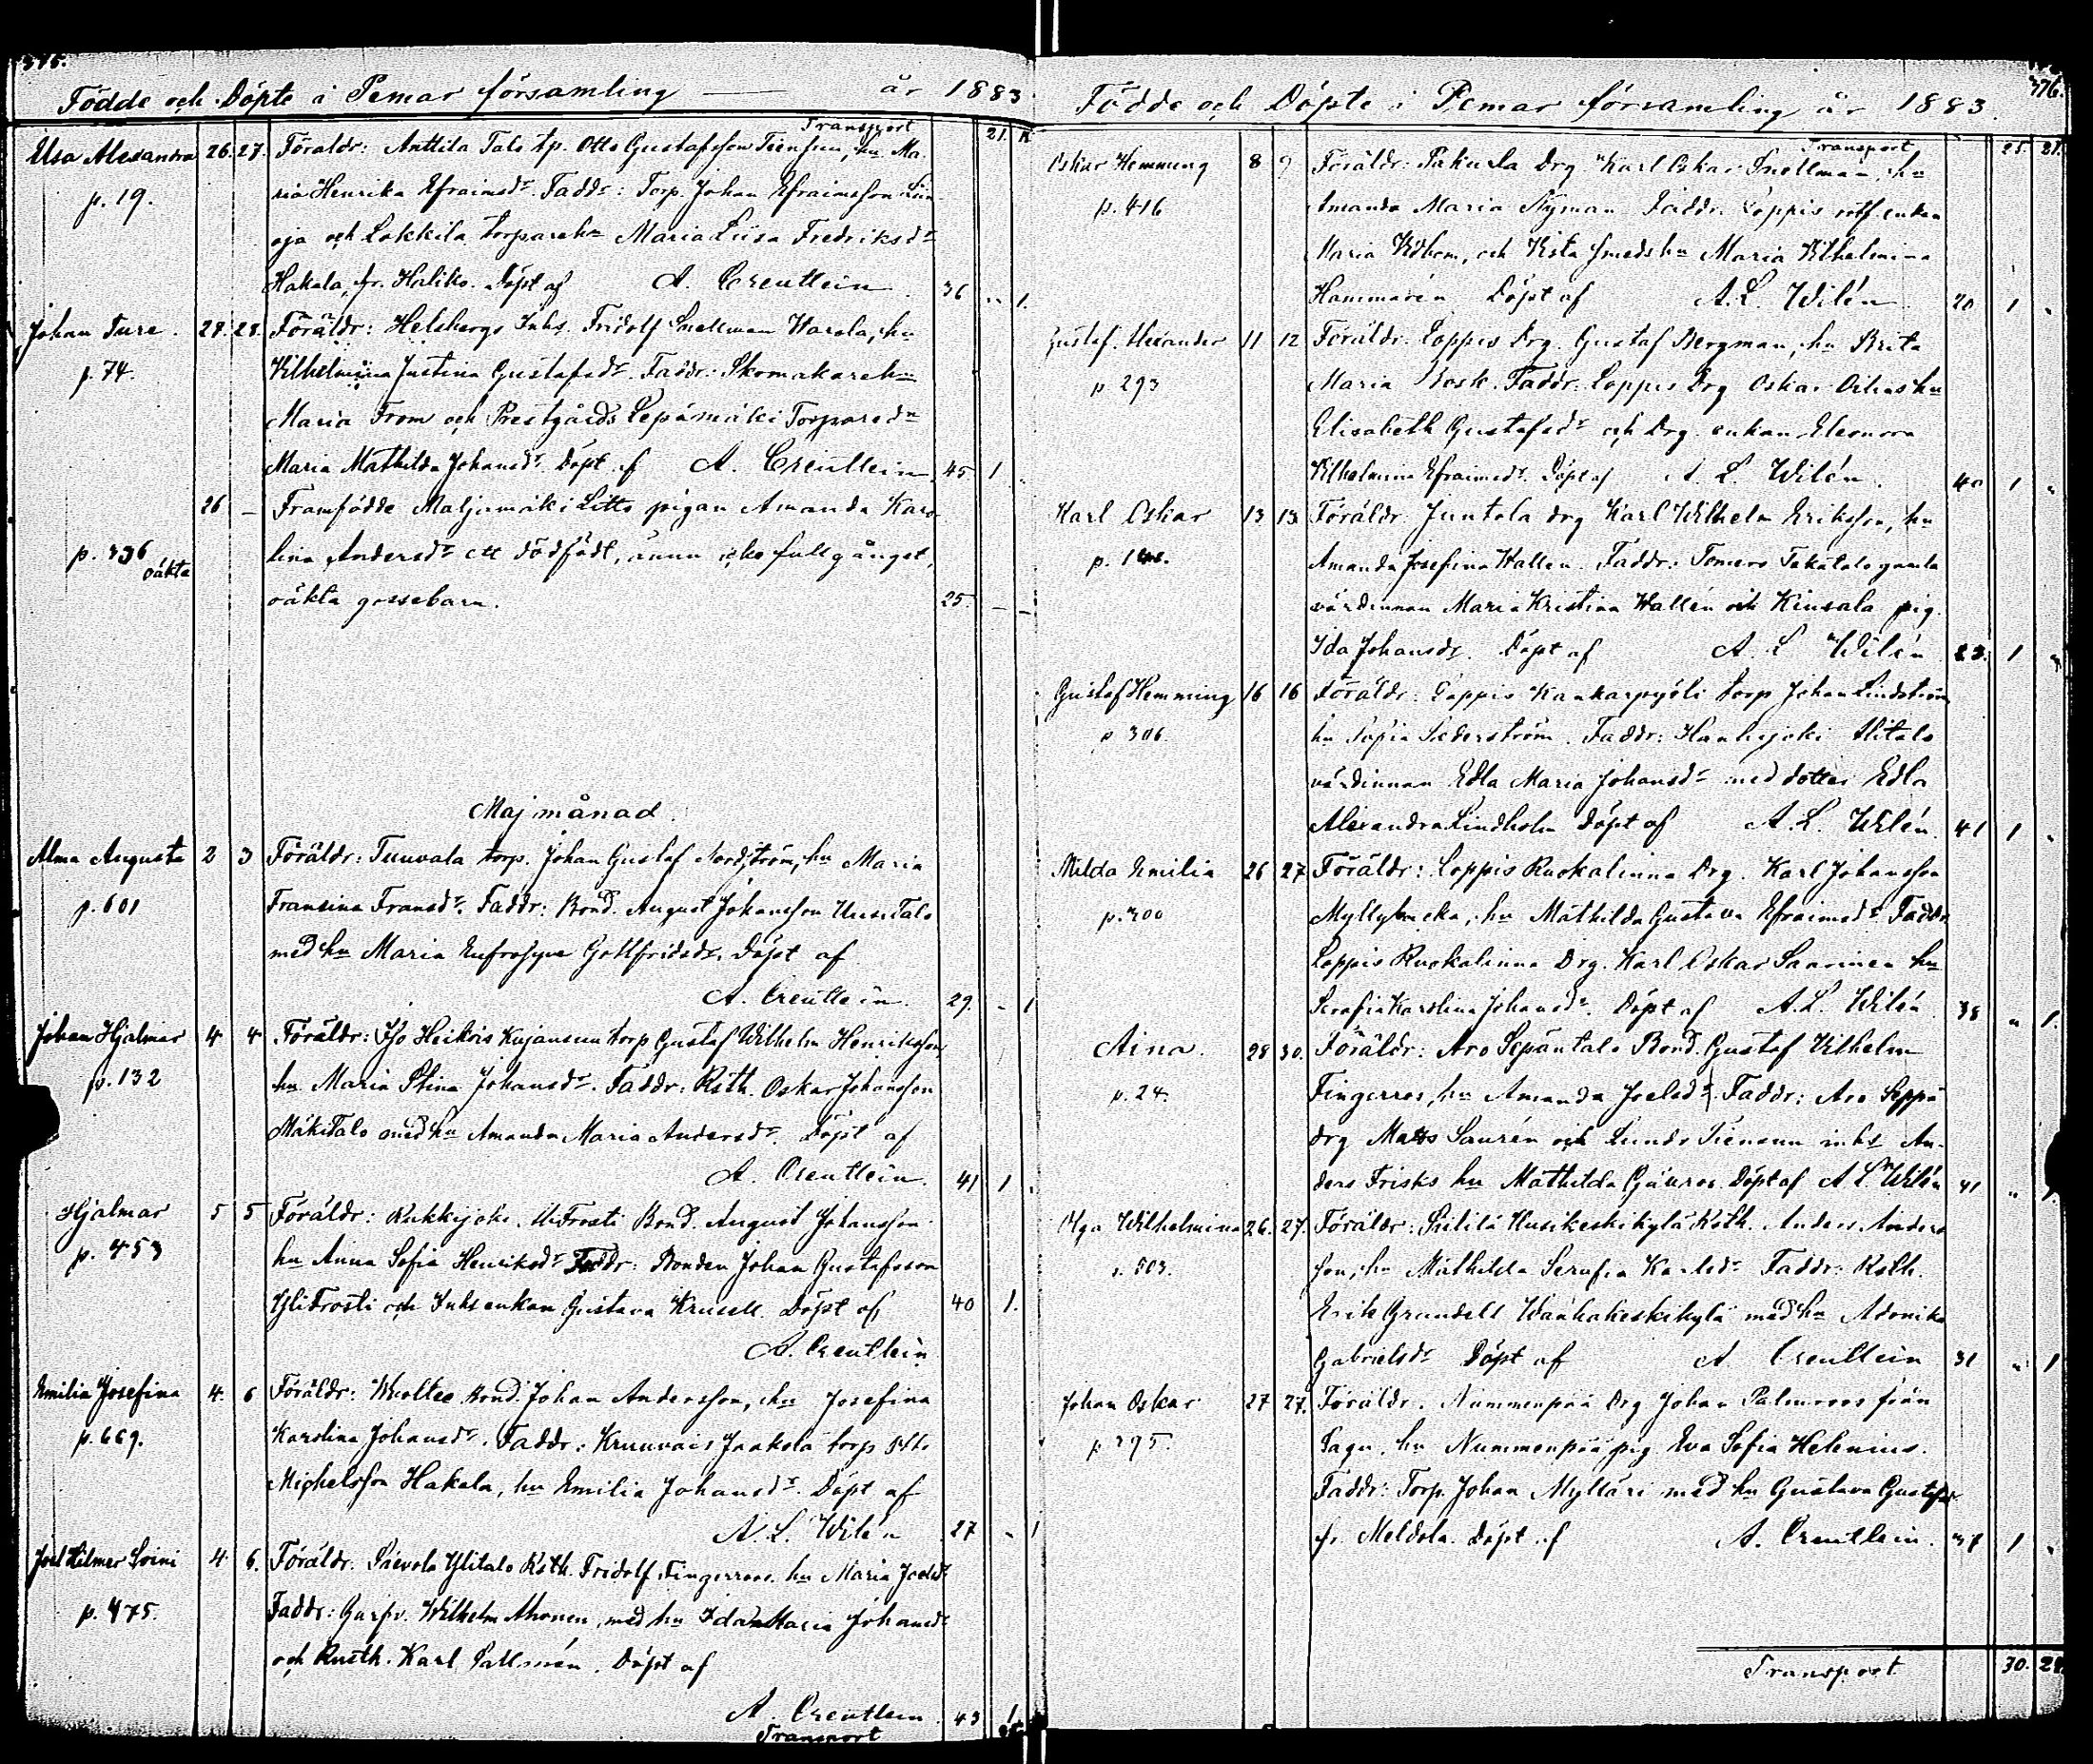 375.
Födde och Döpte i Pemar församling — år 1883
Transport 21.
Elsa Alexandra 26. 27. Föräldr: Anttila Talo tp. Otto Gustafsson Teensuu, hu Ma-
p. 19. ria Henrika Efraimsdr. Faddr: Torp. Johan Efraimsson Liin-
oja och Lokkila torparehu Maria Liisa Fredriksdr
Hakala, fr. Haliko. Döpt af A. Creutlein. 36 " 1.
Johan Ture. 28. 28. Föräldr: Helsbergs Inhs. Fridolf Snellman Harela, hu
p. 74. Vilhelmina Justina Gustafsdr. Faddr: Skomakarehu
Maria From och Prestgårds Lepämäki Torparedr
Maria Mathilda Johansdr. Döpt af A. Creutlein 45 1
26 – Framfödde Maljamäki Litts pigan Amanda Karo-
p. 336 oäkta lina Andersdr ett dödfödt, ännu icke fullgånget,
oäkta gossebarn. 25. – –
Maj månad.
Alma Augusta 2 3 Föräldr: Tuuvala torp. Johan Gustaf Nordström, hu Maria
p. 601 Fransina Fransdr. Faddr: Bond. August Johansson Uusitalo
med hu Maria Eufrosyne Gottfridsdr. Döpt af
A. Creutlein. 29. - 1
Johan Hjalmar 4 4 Föräldr: Iso Heikois Kujansuu torp Gustaf Wilhelm Henriksson
p. 132 hu Maria Stina Johansdr. Faddr: Rsth. Oskar Johansson
Mäkitalo med hu Amanda Maria Andersdr. Döpt af
A. Creutlein. 41 1
Hjalmar 5 5 Föräldr: Kukkijoki Bond. August Johansson
p. 453 hu Anna Sofia Henriksdr Faddr: Bonden Johan Gustafsson
YliFrosti och Inhsenkan Gustava Krusell. Döpt af 40 1.
A. Creutlein
Emilia Josefina 4. 6 Föräldr: Bond. Johan Andersson, hu Josefina
p. 669. Karolina Johansdr. Faddr: Kruuvais Jaakola torp Otto
Michelsson Hakala, hu Emilia Johansdr. Döpt af
A. L. Wilén 27 - 1
Joel Hilmer Soini 4. 6. Föräldr. Paevola Ylitalo Rsth. Fridolf Fingerroos. hu Maria Joelsdr
p. 475. Faddr: Garfv. Wilhelm Ahonen, med hu Ida Maria Johansdr
och Rusth. Karl Pallmén. Döpt af
A. Creutlein. 43 1
Transport
376.
Födde och Döpte i Pemar församling år 1883.
Transport 25 21.
Oskar Hemming 8 9 Föräldr: Pakurla Drg Karl Oskar Snellman, hu
p. 416 Amanda Maria Nyman Faddr. Loppis rotf. enkan
Maria Widbom, och Vista smedshu Maria Vilhelmina
Hammarén Döpt af A.L. Wilén 20 1 "
Gustaf Alexander 11 12 Föräldr. Loppis Drg. Gustaf Bergman, hu Brita
p. 293 Maria Bosk. Faddr. Loppis Drg Oskar hu
Elisabeth Gustafsdr och Drg. enkan Eleonora
Vilhelmina Efraimsdr. Döpt af A. L. Wilén. 40 1 "
Karl Oskar 13 13. Föräldr. Juntola drg Karl Wilhelm Eriksson, hu
p. Amanda Josefina Wallen. Faddr: Tomero Takatalo gamla
värdinnan Maria Kristina Wallén och Kiusala pig.
Ida Johansdr. Döpt af A. L Wilén 23. 1 "
Gustaf Hemming 16 16 Föräldr: Loppis Kankarpyöli torp Johan Lindström
p 306. hu Sofia Sederström. Faddr: Hanhijoki Ylitalo
värdinnan Edla Maria Johansdr med dotter Edla
Alexandra Lindholm Döpt af A.L. Wilén. 41 1 "
Milda Emilia 26 27 Föräldr: Loppis Ruokalinna Drg. Karl Johansson
p. 300 Myllybacka, hu Mathilda Gustava Efraimsdr. Faddr
Loppis Ruokalinna Drg. Karl Oskar Saarinen hu
Serafia Karolina Johansdr. Döpt af A.L. Wilén 38 " 1.
Aina. 28 30. Föräldr: Aro Sepäntalo Bond. Gustaf Vilhelm
p. 24. Fingerroos, hu Amanda Joelsdr. Faddr: Aro Seppä
drg Matts Saurén och Lundo Tiensuu inhs An-
ders Frisks hu Mathilda Döpt af A L Wilén 41 " 1.
Olga Wilhelmina 26. 27. Föräldr: Siitilä Rsth. Anders Anders
503. son, hu Mathilda Serafia Karlsdr Faddr: Rsth.
Erik Grundell Wanhakeskikylä med hu Adonika
Gabrielsdr Döpt af A. Creutlein 31 " 1
Johan Oskar 27 27. Föräldr. Nummenpää Drg Johan Palmroos från
p 395. Sagu, hu Nummenpää pig. Eva Sofia Helenius.
Faddr: Torp. Johan Mylläri med hu Gustava Gustafsdr
fr. Meldola. Döpt af A. Creutlein. 37 1 "
Transport 30. 24